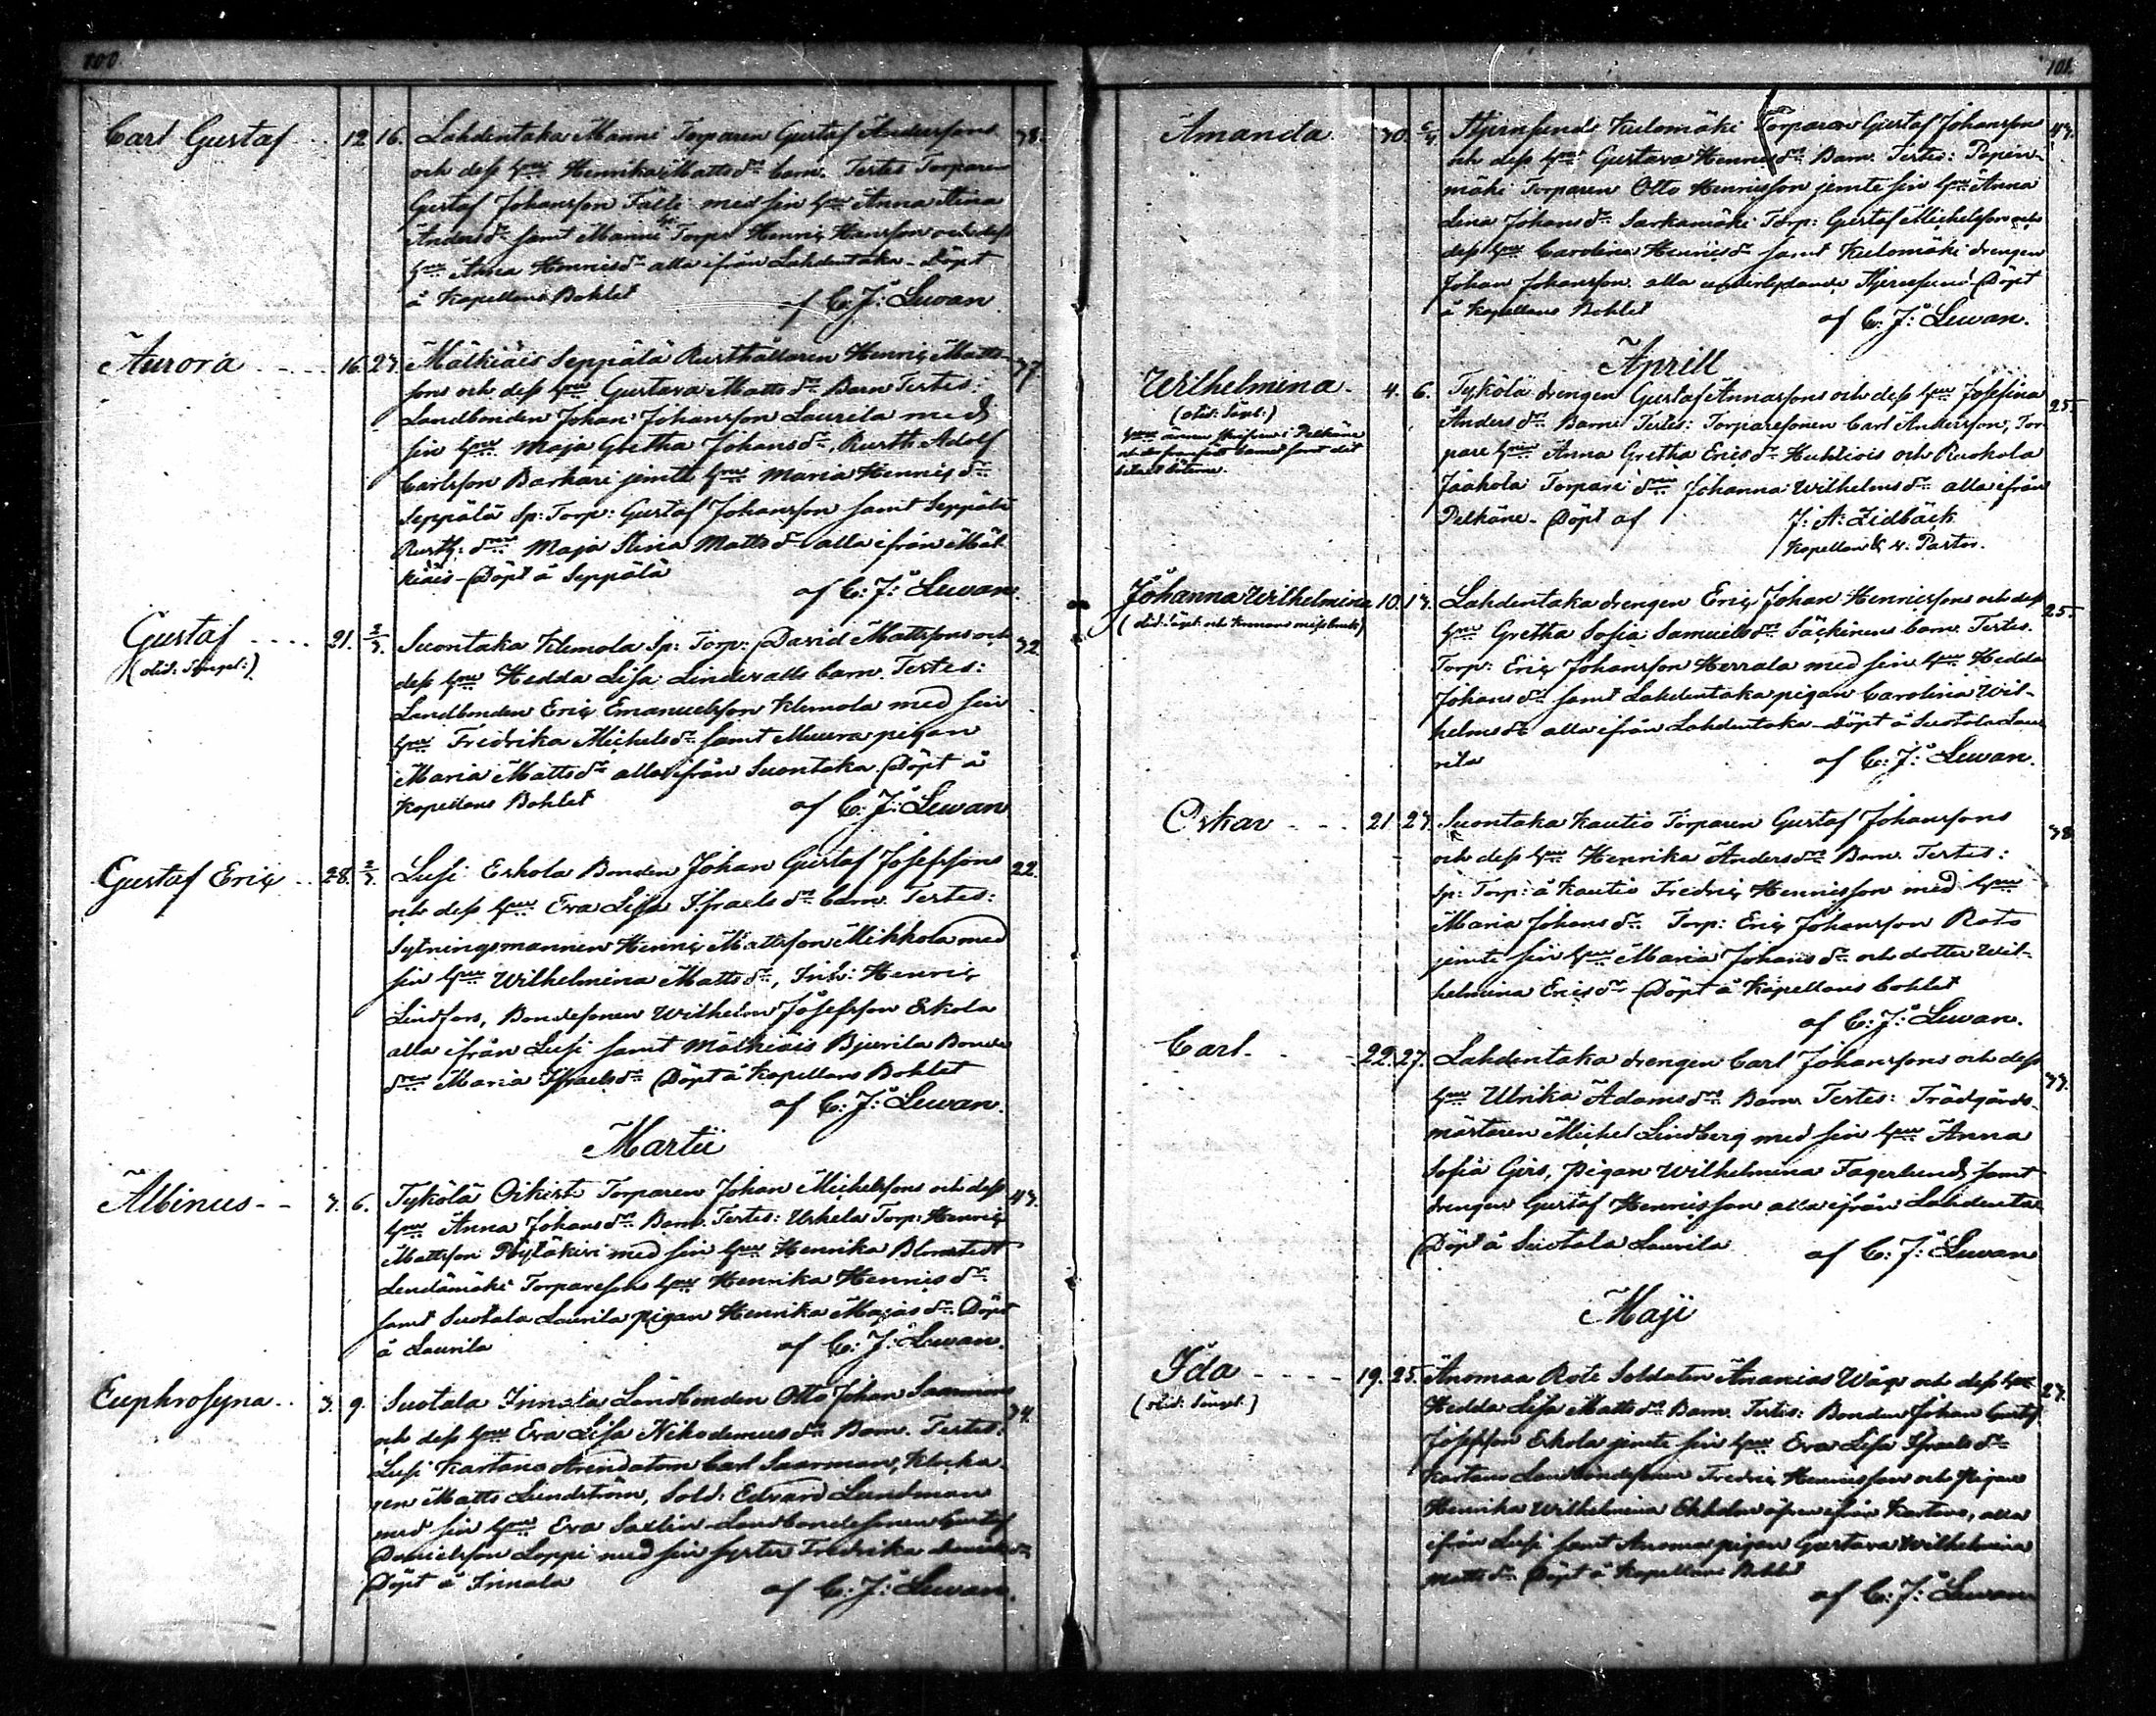 100.
Carl Gustaf 12 16. Lahdentaka Manni Torparen Gustaf Anderssons 38.
och dess hru Henrika Mattsdr barn. Testes Torparen
Gustaf Johansson Fälti med sin hru Anna Stina
Andersdr samt Manni Sp: Torp: Henric Hansson och dess
hru Anna Henricsdr alla ifrån Lahdentaka. Döpt
å Kapellans Bohlet af C: J: Lewan
Aurora 16. 23. Mälkiäis Seppälä Rusthållaren Henric Matts- 37.
sons och dess hru Gustava Mattsdr Barn Testes:
Landbonden Johan Johansson Laurila med
sin hru Maja Gretha Johansdr, Rusth. Adolf
Carlsson Barkari jemte hru Maria Henricsdr
Seppälä Sp: Torp: Gustaf Johansson samt Seppälä
Rusth: drn Maja Stina Mattsdr alla ifrån Mäl-
kiäis. Döpt å Seppälä
af C: J: Lewan.
Gustaf 21. 2/3. Suontaka Klemola Sp: Torp: David Mattssons och 32.
(olid: Singel:) dess hru Hedda Lisa Lindevalls barn. Testes:
Landbonden Eric Emanuelsson Klemola med sin
hru Fredrika Michelsdr samt Muura pigan
Maria Mattsdr alla ifrån Suontaka. Döpt å
Kapellans Bohlet af C: J: Lewan
Gustaf Eric 28. 2/3. Lusi Eskola Bonden Johan Gustaf Josefssons 22.
och dess hru Eva Lisa Israelsdr barn. Testes:
Sytningsmannen Henric Mattsson Mikkola med
sin hru Wilhelmina Mattsdr, Inh: Henric
Lindfors, Bondesonen Wilhelm Josefsson Eskola
alla ifrån Lusi samt Mälkiäis Bjurila Bonde
drn Maria Israelsdr Döpt å Kapellans Bohlet
af C: J: Lewan.
Martii
Albinus 3. 6. Tykölä Oikisti Torparen Johan Michelssons och dess 43.
hru Anna Johansdr Barn. Testes: Uskela Torp: Henric
Mattsson Pöytäkivi med sin hru Henrika Blomstedt
Lendämäki Torparesons hru Henrika Henricsdr
samt Suotala Laurila pigan Henrika Majasdr Döpt
å Laurila af C: J: Lewan.
Euphrosyna 3. 9. Suotala Innala Landbonden Otto Johan Saarmans 34.
och dess hru Eva Lisa Nikodemusdr Barn. Testes:
Lusi Kartano Arendatorn Carl Saarman, Klocka-
ren Matts Lundström, Sold: Edvard Lundman
med sin hru Eva Saxlin Landbondesonen Gustaf
Danielsson Loppi med sin syster Fredrika Danielsdr
Döpt å Innala af C: J: Lewan.
101.
Amanda 30. 6/4. Stjernsunds Kulomäki Torparen Gustaf Johansson 43.
och dess hru Gustava Henricsdr Barn. Testes: Papin-
mäki Torparen Otto Henricsson jemte sin hru Anna
Lina Johansdr Sarkamäki Torp: Gustaf Michelsson och
dess hru Carolina Henricsdr samt Kulomäki drengen
Johan Johansson alla underlydande Stjernsund. Döpt
å Kapellans Bohlet af C: J: Lewan.
Aprill
Wilhelmina 4. 6. Tykölä drengen Gustaf Annassons och dess hru Josefina 25.
(olid: Singl:) Andersdr Barn. Testes: Torparesonen Carl Andersson, Tor-
pare hru Anna Gretha Ericsdr Huhtiois och Ruokola
Jaakola Torpare drn Johanna Wilhelmsdr alla ifrån
Pelkäne. Döpt af J: A: Lidbäck
Kapellan & v. Pastor.
Johanna Wilhelmina 10. 13. Lahdentaka drengen Eric Johan Henricssons och dess 25.
hru Gretha Sofia Samuelsdr Säckinens barn. Testes.
Torp: Eric Johansson Herrala med sin hru Hedda
Johansdr samt Lahdentaka pigan Carolina Wil-
helmsdr alla ifrån Lahdentaka. Döpt å Suotala Lau-
rila af C: J: Lewan.
Oskar 21. 23. Suontaka Kautio Torparen Gustaf Johanssons 38.
och dess hru Henrika Andersdr Barn. Testes:
Sp: Torp: å Kautio Fredric Henricsson med hru
Maria Johansdr Torp: Eric Johansson Rato
jemte sin hru Maria Johansdr och dotter Wil-
helmina Ericsdr Döpt å Kapellans bohlet
af C: J: Lewan.
Carl 22. 27. Lahdentaka drengen Carl Johanssons och dess 33.
hru Ulrika Adamsdr Barn. Testes: Trädgårds-
mästaren Michel Lindberg med sin hru Anna
Sofia Girs, pigan Wilhelmina Fagerlund, samt
drengen Gustaf Henricsson alla ifrån Lahdentaka
Döpt å Suotala Laurila af C: J: Lewan
Maji
Ida 19. 25. Anomaa Rote Soldaten Ananias Wåg och dess hru 27.
(olid: Singel:) Hedda Lisa Mattsdr Barn. Testes: Bonden Johan Gustaf
Josefsson Eskola jemte sin hru Eva Lisa Israelsdr
Kartano Landbondesonen Fredric Henricsson och Pigan
Henrika Wilhelmina Ekholm äfven ifrån Kartano, alla
ifrån Lusi samt Anomaa pigan Gustava Wilhelmina
Mattsdr Döpt å Kapellans Bohlet
af C: J: Lewan